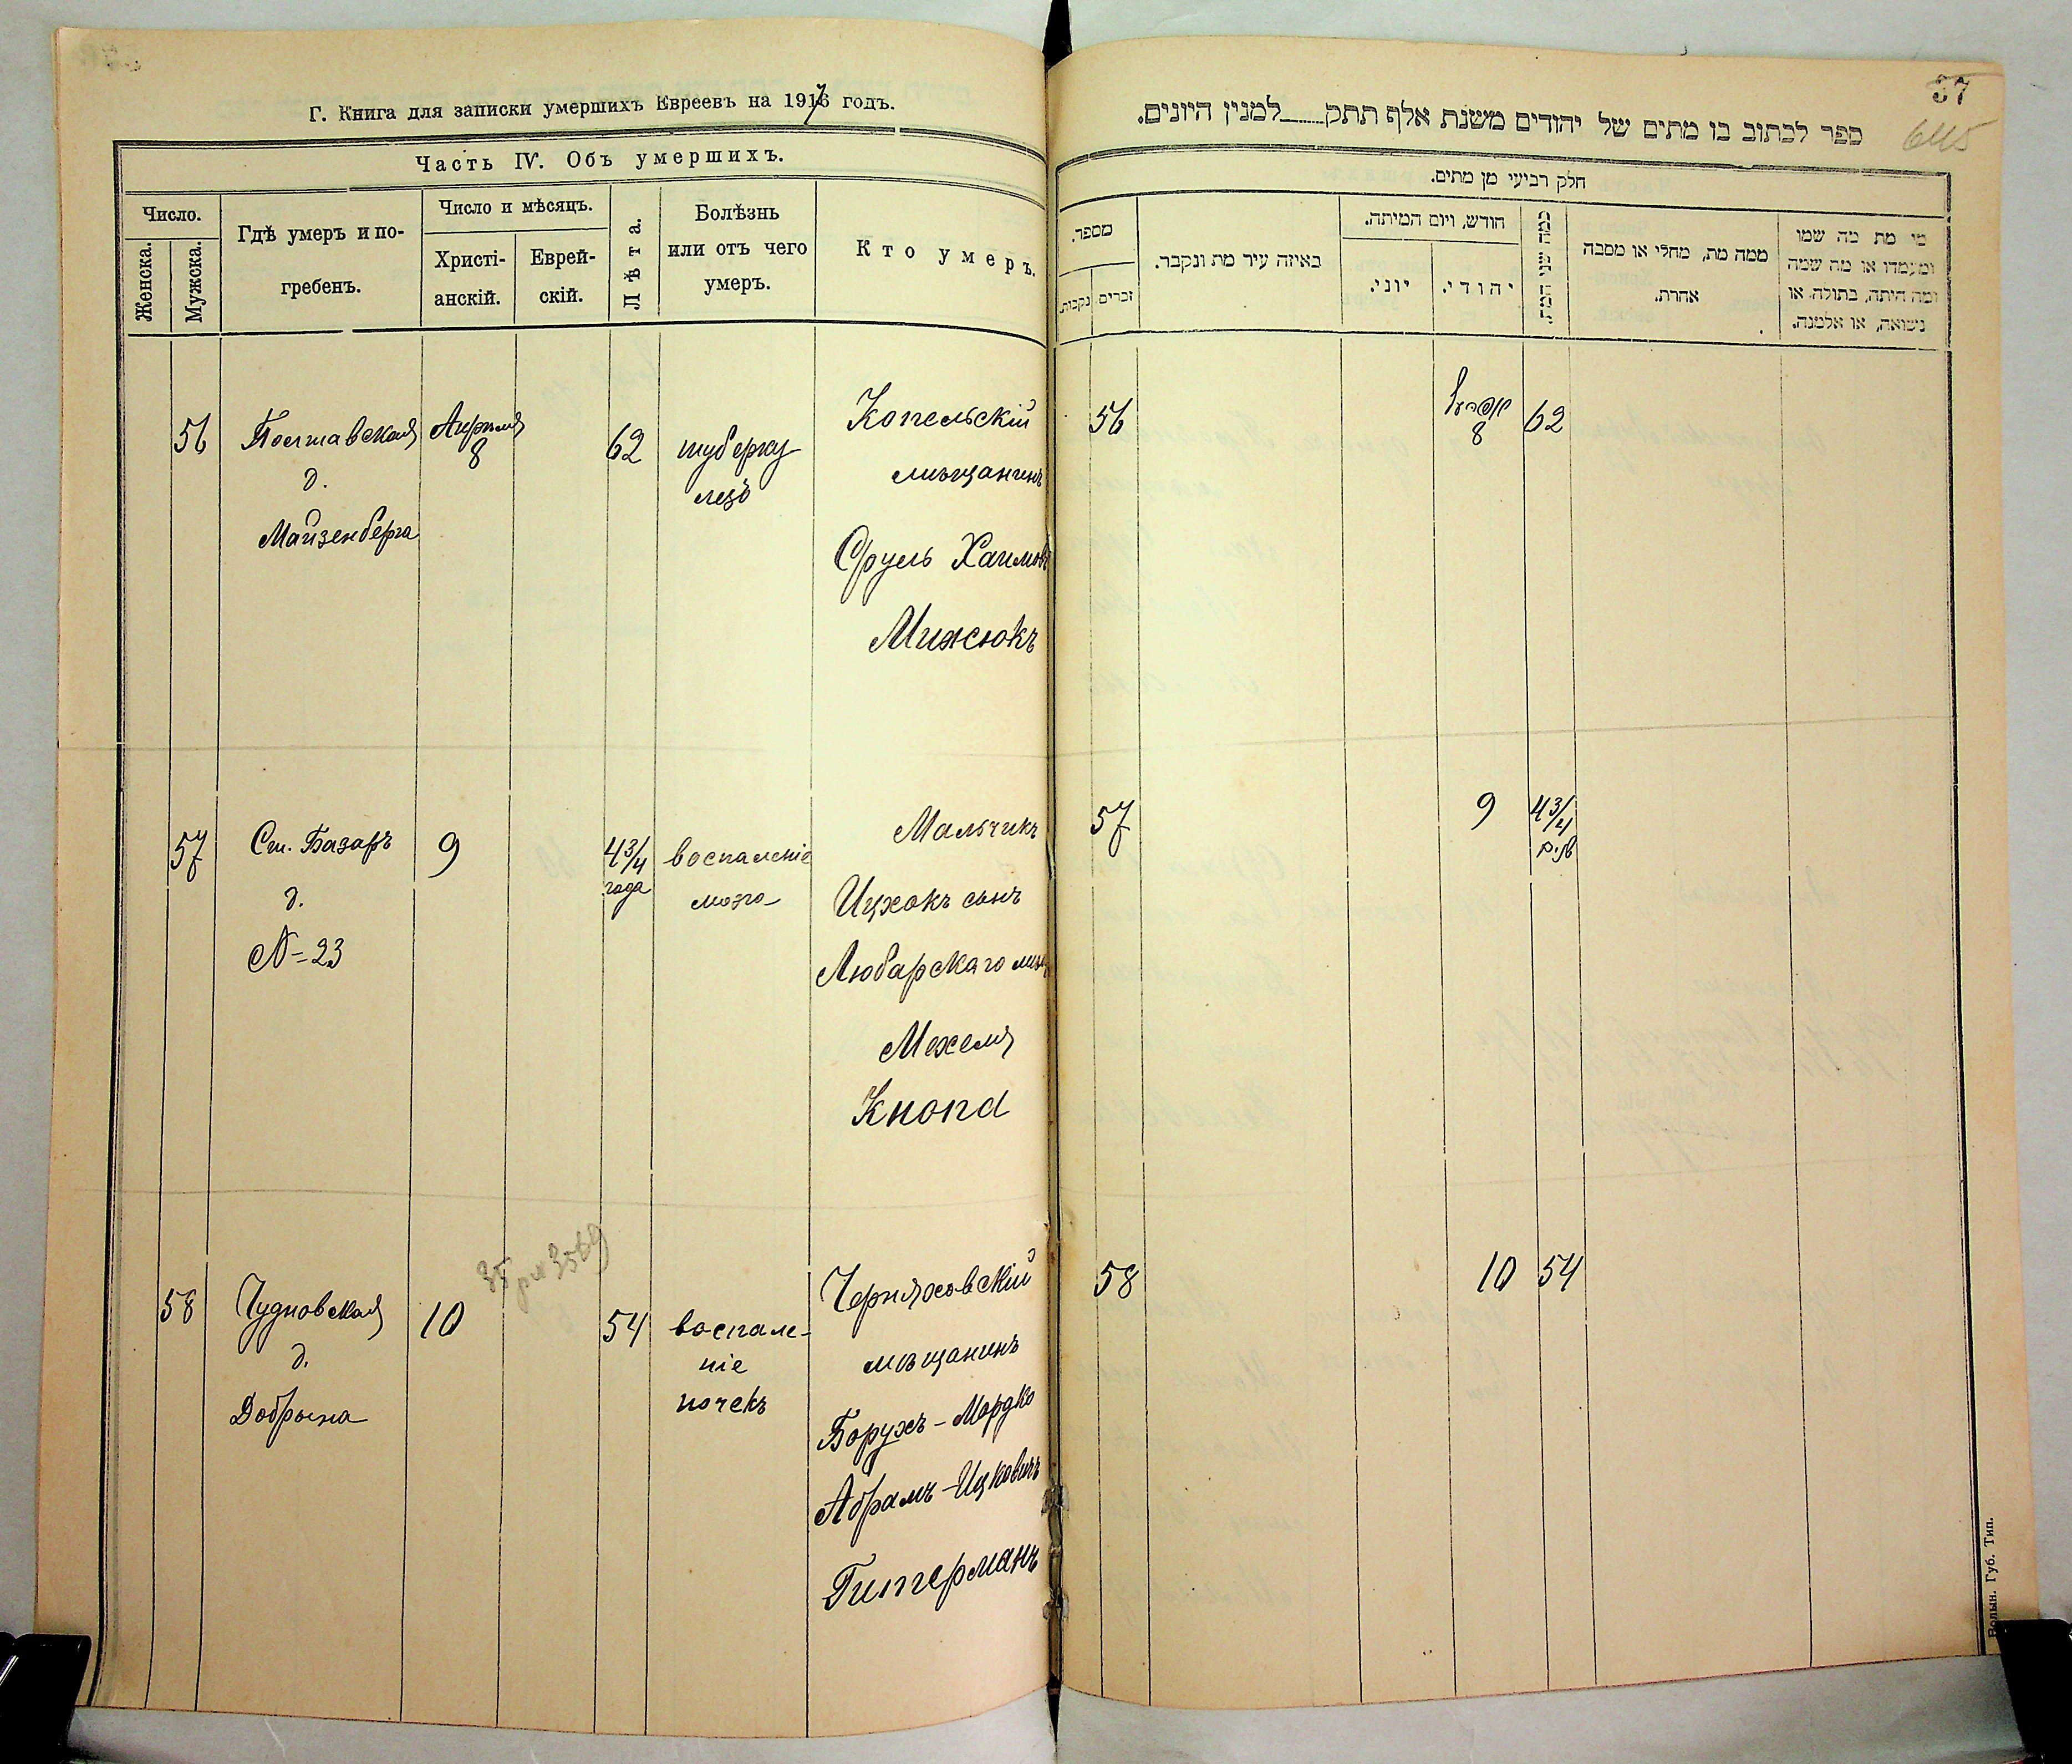 Г. Книга для записки умершихъ Евреевъ на 1917 годъ.
Часть IV. Объ умершихъ.
Число.
Женска.
Мужска.
Гдѣ умеръ и по-
гребенъ.
Число и мѣсяцъ.
Христі-
анскій.
Еврей-
скій.
Лѣта.
Болѣзнь
или отъ чего
умеръ.
Кто умеръ.
56
Полтавская
д.
Майзенберга
Апрѣля
8
62
туберку
лезъ
Копельскій
мѣщанинъ
Сруль Хаимовъ
Мижсюкъ
57
Ст. Базаръ
д.
№ 23
9
4 3/4
года
воспаленіе
мозга
Мальчикъ
Ицхокъ сынъ
Любарскаго мѣщ
Мехеля
Кнопа
58
Чудновская
д.
Добрына
10
54
воспале-
ніе
почекъ
Черняховскій
мѣщанинъ
Борухъ-Мордко
Абрамъ-Ицковичъ
Гитерманъ
37
645
ספר לכתוב בו מתים של יהודים משנת אלף תתק____למנין היונים.
חלק רביעי מן מתים.
מספר.
זכרים
נקבות.
באיזה עיר מת ונקבר.
חודש, ויום המיתה.
יוני.
יהודי.
כמה שני המת.
ממה מת, מחלי או מסבה
אחרת.
מי מת מה שמו
ומעמדו או מה שמה
ומה היתה, בתולה, או
נשואה, או אלמנה.
56
אפריל
8
62
57
9
4 3/4
שנים
58
10
54
Волын. Губ. Тип.